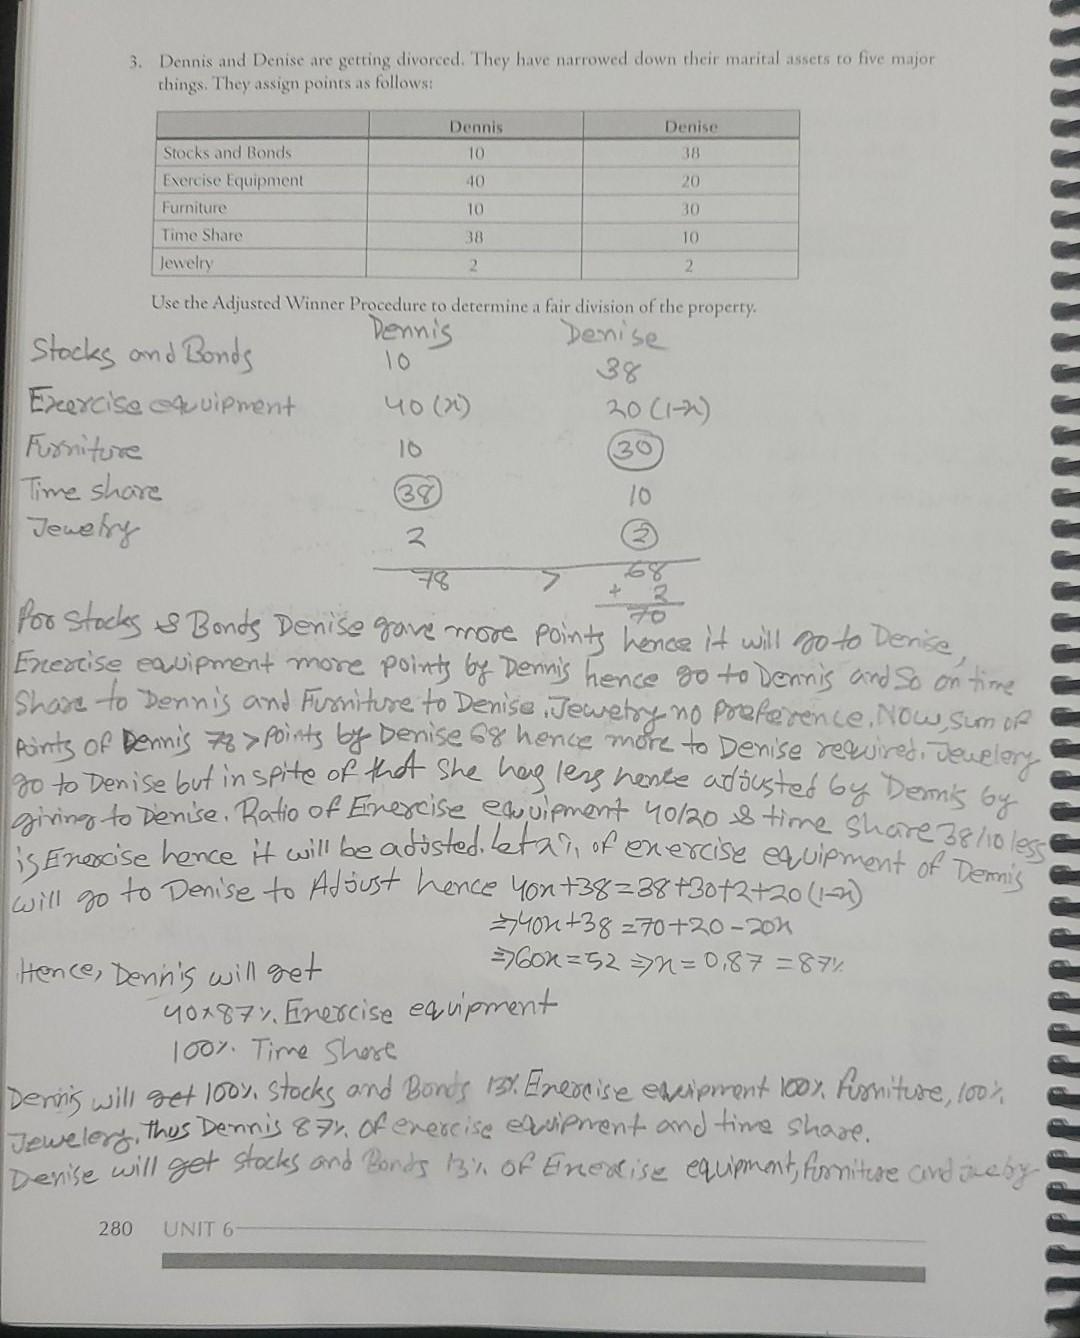 3. Dennis and Denise are getting divorced. They have narrowed down their marital assets to five major
things. They assign points as follows:
Dennis Denise
Stocks and Bonds 10 38
Exercise Equipment 40 20
Furniture 10 30
Time Share 38 10
Jewelry 2 2
Use the Adjusted Winner Procedure to determine a fair division of the property.
Dennis Denise
Stocks and Bonds 10 38
Exercise equipment 40 (x) 20 (1-x)
Furniture 10 30
Time share 38 10
Jewelry 2 2
78 > 68
+ 2
70
For Stocks & Bonds Denise gave more points hence it will go to Denise,
Exercise equipment more points by Dennis hence go to Dennis and so on time
Share to Dennis and Furniture to Denise. Jewelry no preference. Now, sum of
points of Dennis 78 > points by Denise 68 hence more to Denise required. Jewelery
go to Denise but in spite of that she has less hence adjusted by Dennis by
giving to Denise. Ratio of Exercise equipment 40/20 & time share 38/10 less
is Exercise hence it will be adjusted. let x% of exercise equipment of Dennis
will go to Denise to Adjust hence 40x+38=38+30+2+20(1-x)
⇒40x+38=70+20-20x
⇒60x=52 ⇒x=0.87=87%
Hence, Dennis will get
40x87% Exercise equipment
100% Time Share
Dennis will get 100% Stocks and Bonds 13% Exercise equipment 100% Furniture, 100%
Jewelery, Thus Dennis 87% of exercise equipment and time share.
Denise will get stocks and Bonds 13% of Exercise equipment, furniture and
280 UNIT 6